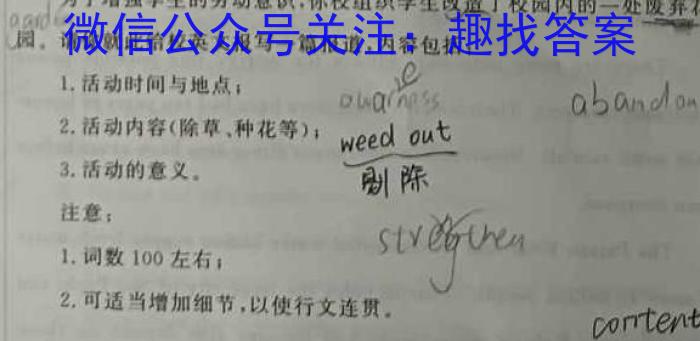 为了增强学生的劳动意识,你校组织学生改造了校园内的一处废弃花
园。请
微信公众号关注：趣找答案
1.活动时间与地点;
2.活动内容(除草、种花等);
3.活动的意义。
注意:
1.词数100左右;
2.可适当增加细节,以使行文连贯。
weed out
剔除
strengthen
content